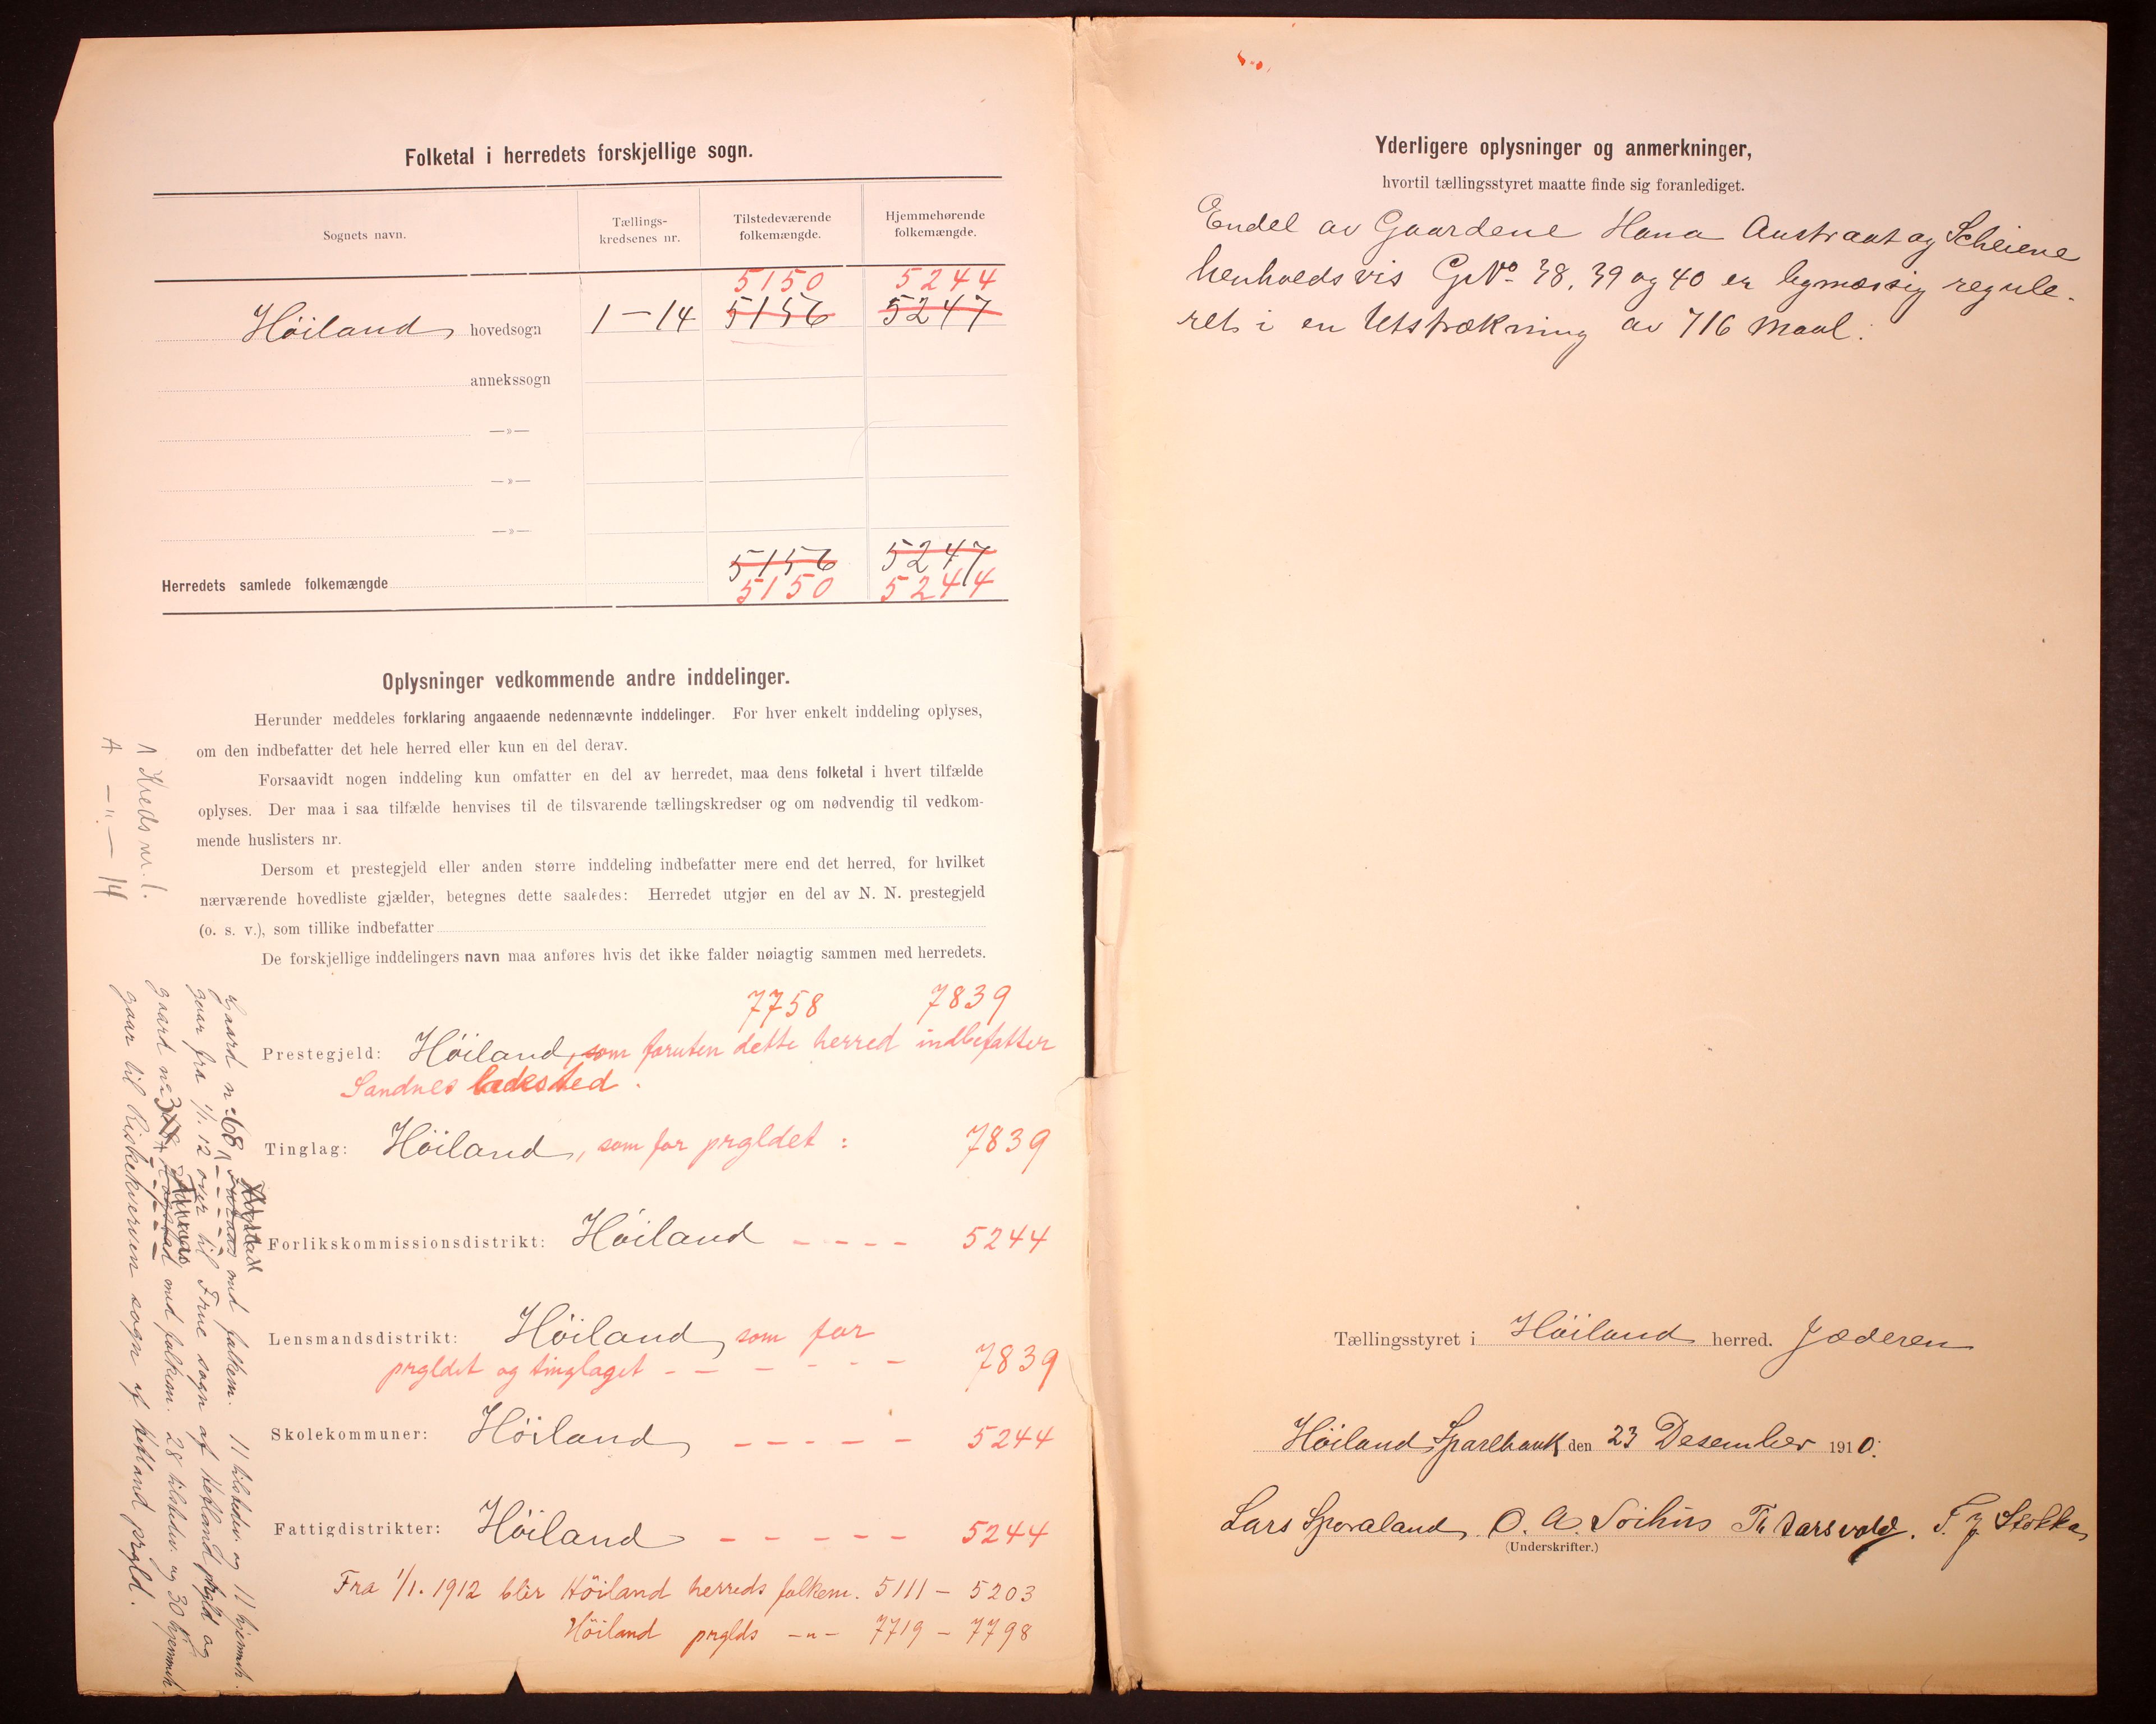 Folketal i herredets forskjellige sogn.
Sognets navn.
Tællings-
kredsenes nr.
Tilstedeværende
folkemængde.
Hjemmehørende
folkemængde.
5150 5244
Höiland hovedsogn 1-14 5156 5247
annekssogn
—»—
—»—
—»—
5156 5247
Herredets samlede folkemængde 5150 5244
Oplysninger vedkommende andre inddelinger.
Herunder meddeles forklaring angaaende nedennævnte inddelinger. For hver enkelt inddeling oplyses,
om den indbefatter det hele herred eller kun en del derav.
Forsaavidt nogen inddeling kun omfatter en del av herredet, maa dens folketal i hvert tilfælde
oplyses. Der maa i saa tilfælde henvises til de tilsvarende tællingskredser og om nødvendig til vedkom-
mende huslisters nr.
Dersom et prestegjeld eller anden større inddeling indbefatter mere end det herred, for hvilket
nærværende hovedliste gjælder, betegnes dette saaledes: Herredet utgjør en del av N. N. prestegjeld
(o. s. v.), som tillike indbefatter
De forskjellige inddelingers navn maa anføres hvis det ikke falder nøiagtig sammen med herredets.
7758 7839
Prestegjeld: Höiland, som foruten dette herred indbefatter
Sandnes ladested.
Tinglag: Höiland, som for prgldet: 7839
Forlikskommissionsdistrikt: Höiland - - - - 5244
Lensmandsdistrikt: Höiland, som for
prgldet og tinglaget - - - - - - 7839
Skolekommuner: Höiland - - - - - 5244
Fattigdistrikter: Höiland - - - - - 5244
Fra 1/1. 1912 blir Höiland herreds folkem. 5111 - 5203
Höiland prglds -"- 7719 - 7798
1 Kreds nr. 1.
A —"— 14
Gaard nr. 68, Hogstad med folkem. 11 tilstedev. og 11 hjemmeh.
gaar fra 1/1. 12 over til Frue sogn af Hetland prgld og
gaard nr. 3 med folkem. 28 tilstedev. og 30 hjemmeh.
gaar til Riskekverven sogn af Hetland prgld.
Yderligere oplysninger og anmerkninger,
hvortil tællingsstyret maatte finde sig foranlediget.
Endel av Gaardene Hana Austraat og Scheiene
henholdsvis GNo 38, 39 og 40 er bymæssig regule-
ret i en Utstrækning av 716 Maal.
Tællingsstyret i Höiland herred. Jæderen
Höiland Sparebank den 23 Desember 1910.
Lars Sporaland O. A. Soihus Th Aarsvold. T. J. Stokka
(Underskrifter.)